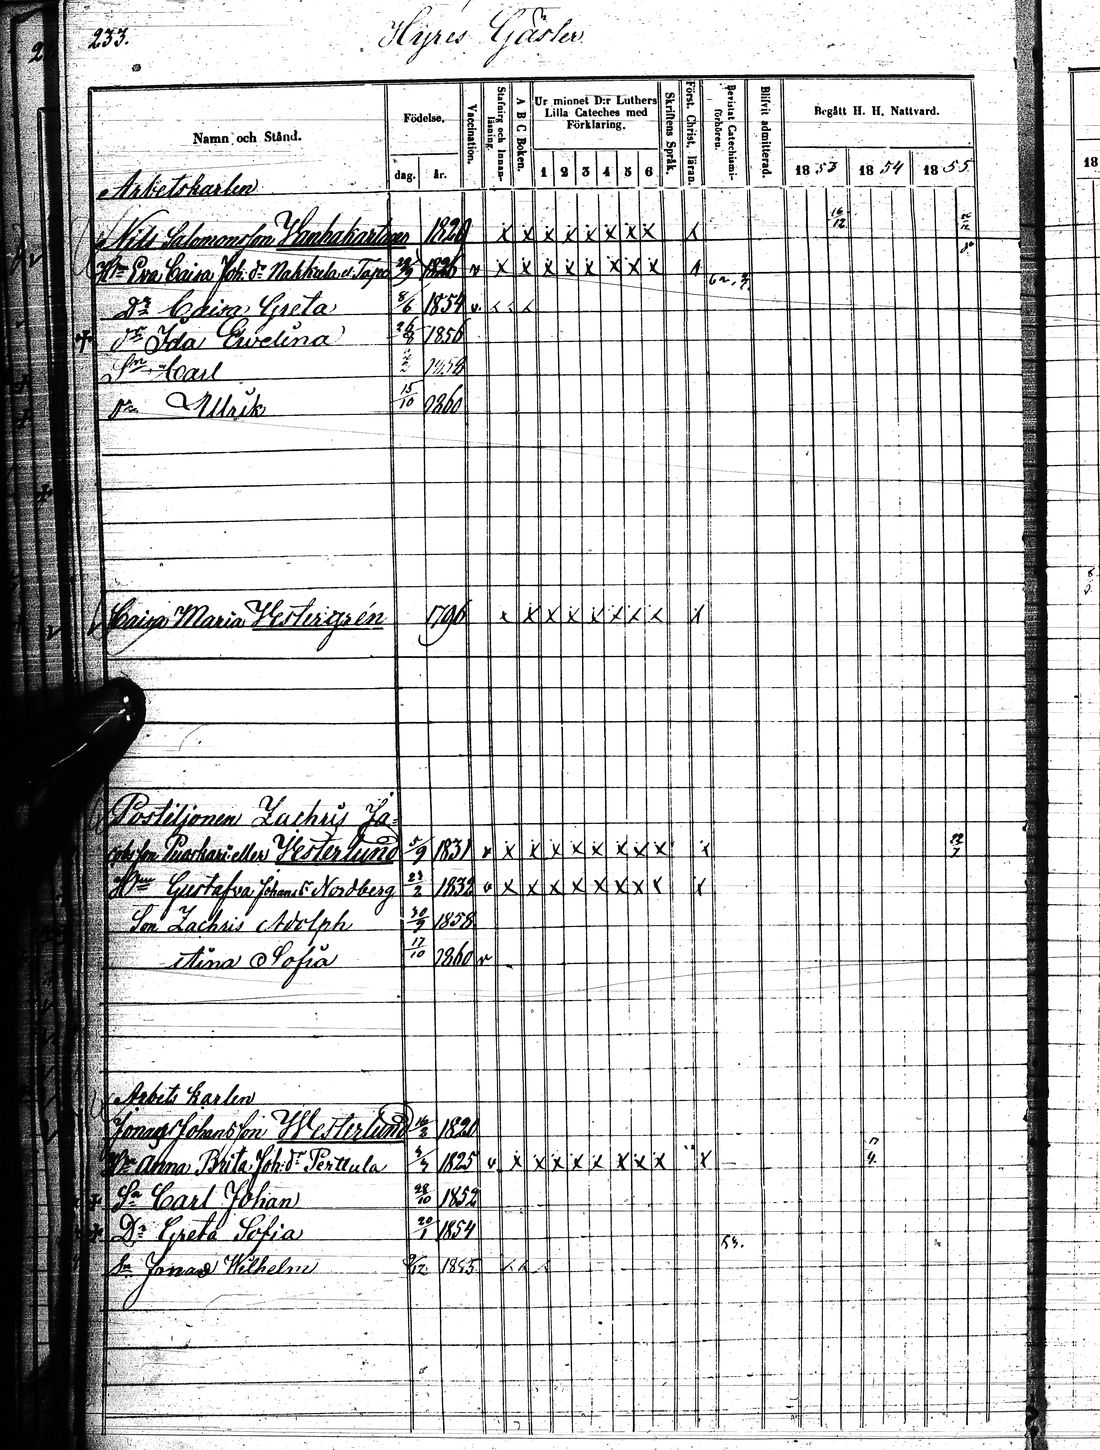 233.
Hyres Gäster
Namn och Stånd.
Födelse.
dag. år.
Vaccination.
Stafning och Innan-läsning.
A B C Boken.
Ur minnet D:r Luthers Lilla Cateches med Förklaring.
1 2 3 4 5 6
Skriftens Språk.
Först. Christ. läran.
Bevistat Catechismi-förhören.
Blifvit admitterad.
Begått H. H. Nattvard.
1853 1854 1855.
Arbetskarlen
Nils Salomonsson Wanhakartano 1820 x x x x x x x x x 16/12
Hu Eva Caisa Joh. dr Nahkula el. Tapo 1826 v x x x x x x x x x
Dr Caisa Greta 8/6 1854 v.
+ dr Ida Evelina 1856
Son Carl 1858
Dr Ullrik 15/10 1860
Caisa Maria Westergrén 1796 x x x x x x x x x
Postiljonen Zachris Ja-
cobsson Puoskari eller Westerlund 5/9 1831 v x x x x x x x x x 22/7
Hu Gustafva Johans dr Nordberg 23/2 1832 v x x x x x x x x x
Son Zachris Adolph 30/9 1858
Aina Sofia 17/10 1860 v
Arbets karlen
Jonas Johansson Westerlund 16/3 1820
Hu Anna Brita Joh. dr Perttula 1825 v x x x x x x x x x
+ Sn Carl Johan 28/10 1852
+ Dr Greta Sofia 20/1 1854
Sn Jonas Wilhelm 9/12 1855